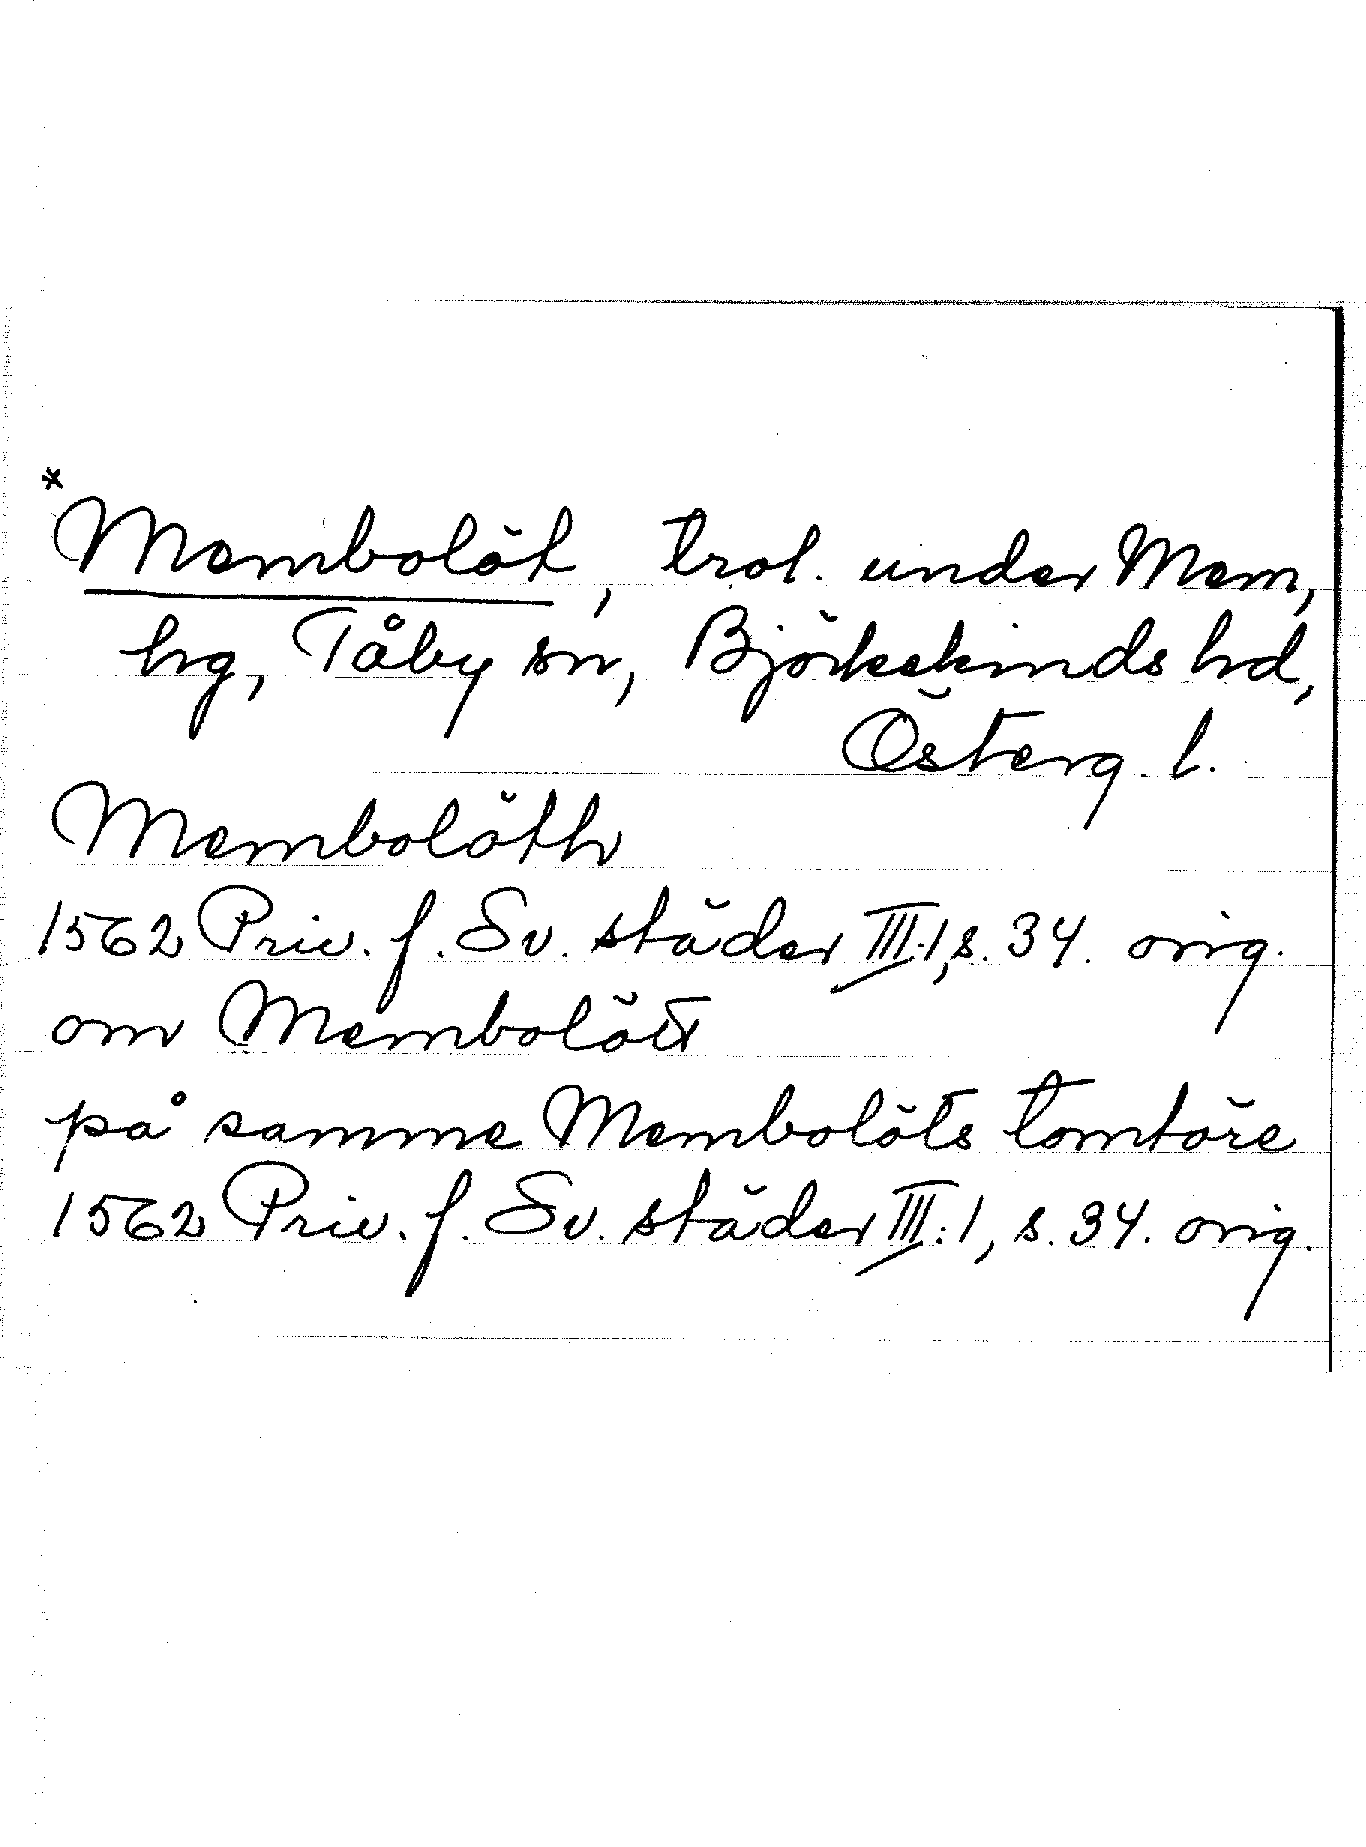 *
Membolöt, trol. under Mem,
hg, Tåby sn, Björkekinds hd,
Österg. l.
Membolöth
1562 Priv. f. Sv. städer III:1, s. 34. orig.
om Membolött
på samme Membolöts tomtöre
1562 Priv. f. Sv. städer III:1, s. 34. orig.